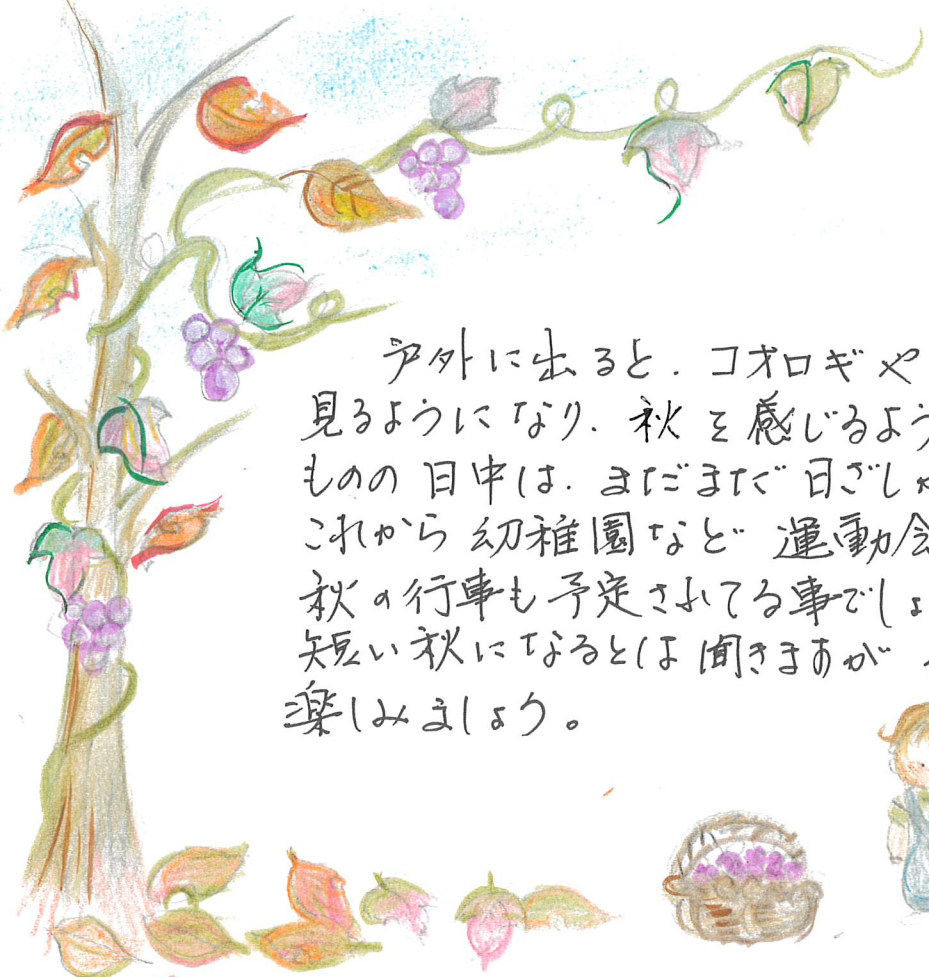 戸外に出ると、コオロギや
見るようになり、秋を感じるよう
ものの日中は、まだまだ日ざしが
これから幼稚園など運動会
秋の行事も予定されてる事でしょ
短い秋になるとは聞きますが
楽しみましょう。